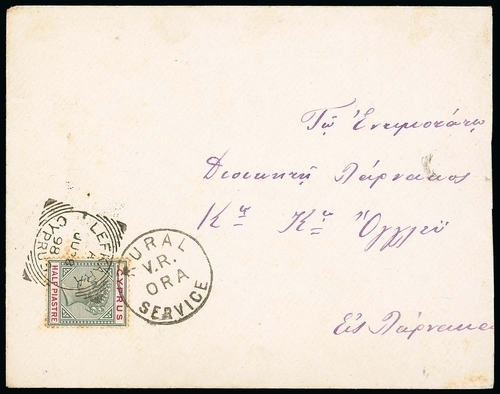 Τῷ Ἐντιμοτάτῳ
Διοικητῇ Λάρνακος
Κῳ Κῳ
Εἰς Λάρνακα
LEFKARA
JU
98
CYPRUS
RURAL
V.R.
ORA
SERVICE
CYPRUS
HALF PIASTRE